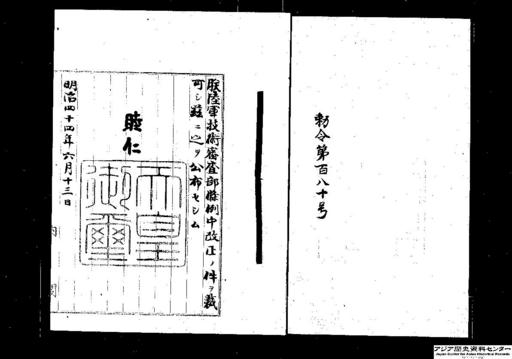 勅令第百八十号
朕陸軍技術審査部條例中改正ノ件ヲ裁
可シ茲ニ之ヲ公布セシム
睦仁
天皇
御璽
明治四十四年六月十三日
内閣
アジア歴史資料センター
Japan Center for Asian Historical Records